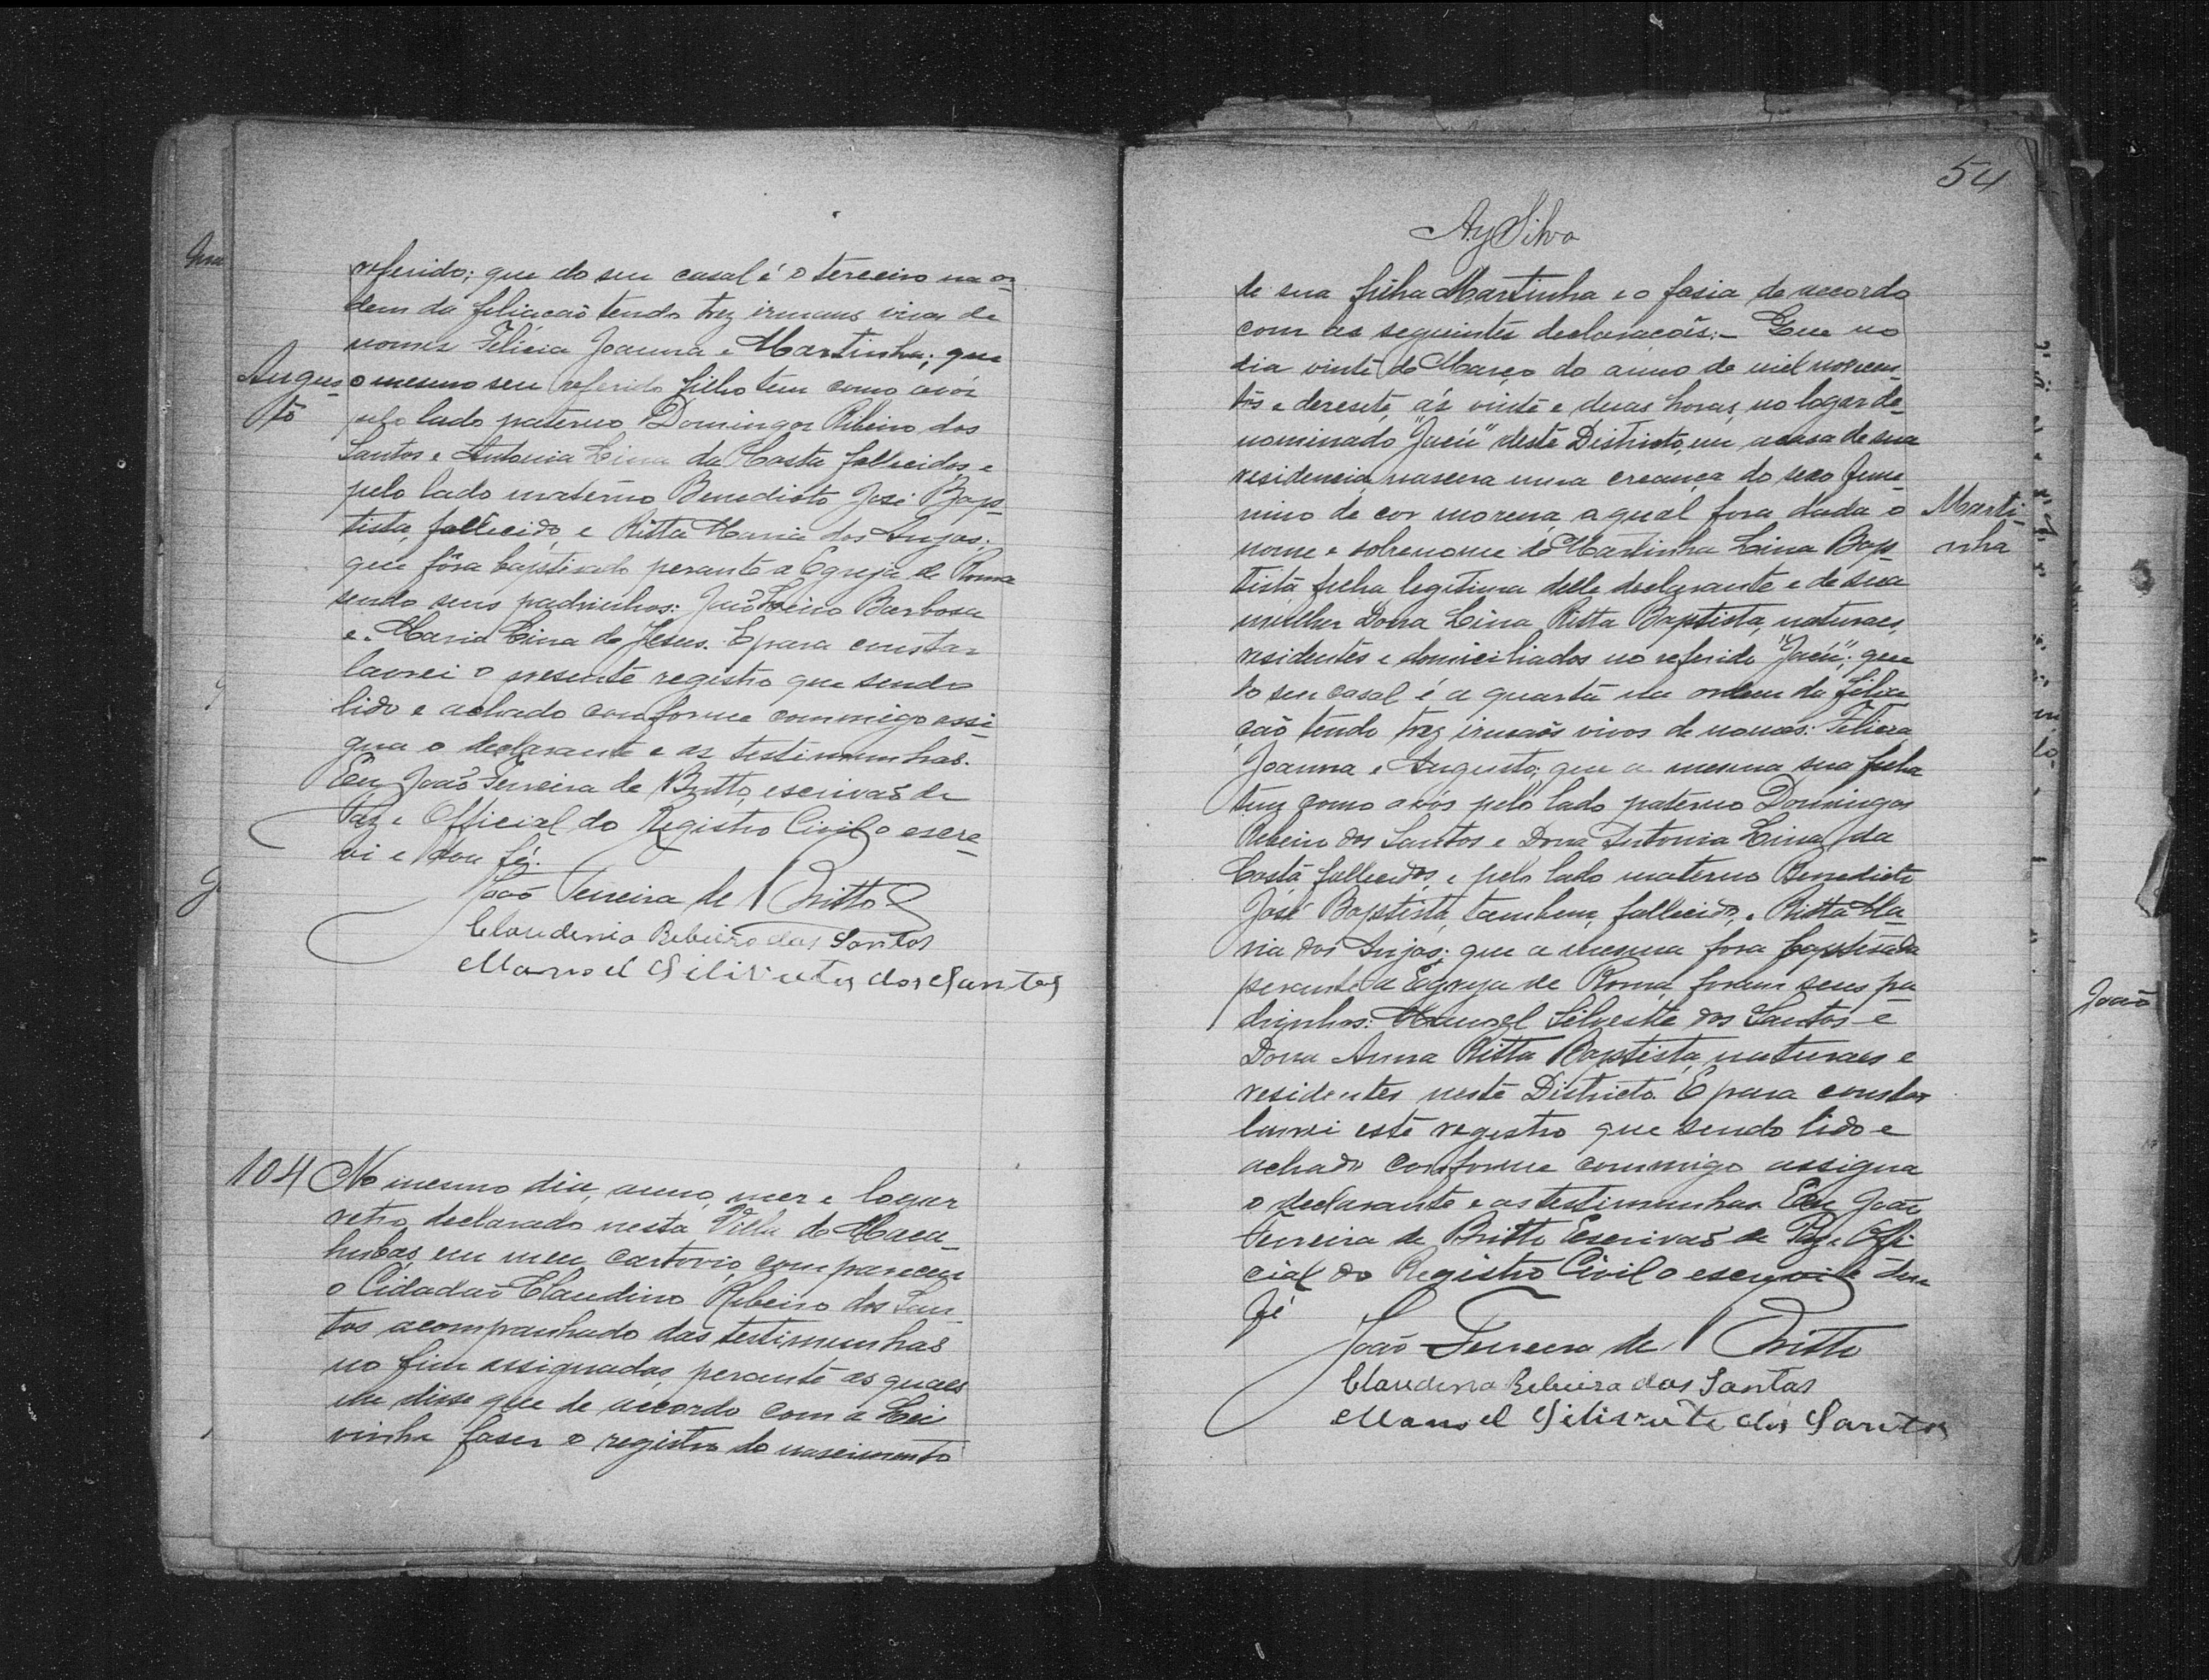 referido; que do seu casal é o terceiro na or-
dem da filiacaõ tendo trez irmans vivas de
nomes Felicia Joanna e Martinha; que
Augus-
to
o mesmo seu referido filho tem como avós
pelo lado paterno Domingos Ribeiro dos
Santos e Antonia Lina da Costa fallecidos, e
pelo lado materno Benedicto José Bap-
tista, fallecido, e Ritta Maria dos Anjos;
que fôra baptisado perante a Egreja de Roma
sendo seus padrinhos: João Barbosa
e Maria Lina de Jesus. E para constar
lavrei o presente registro que sendo
lido e achado conforme commigo assi-
gna o declarante e as testimunhas.
Eu, João Ferreira de Britto, escrivaõ de
Paz e Official do Registro Civil o escre-
vi e dou fé.
João Ferreira de Britto
Claudinio Ribeiro dos Santos
Manoel Silivistes dos Santos
104 No mesmo dia, anno, mez e logar
retro declarado nesta Villa de Maca-
hubas, em meu cartorio, compareceu
o Cidadaõ Claudino Ribeiro dos San-
tos acompanhado das testimunhas
no fim assignadas, perante as quaes
me disse que de accordo com a Lei
vinha faser o registro do nascimento
54
Ay Silva
de sua filha Martinha e o fasia de accordo
com as seguintes declaracoẽs:- Que no
dia vinte de Março do anno de mil novecen-
tos e deresete, ás vinte e duas horas, no logar de-
nominado "Jucú" deste Districto, em a casa de sua
residencia, nascera uma creança do sexo femi-
nino de cor morena a qual fora dada o
Marti-
nha
nome e sobrenome de Martinha Lina Bap-
tista filha legitima delle declarante e de sua
mulher Dona Lina Ritta Baptista, naturaes,
residentes e domiciliados no referido "Jucú"; que
do seu casal é a quarta na ordem da filia-
ção tendo trez irmaõs vivos de nomes: Felicia
Joanna e Augusto; que a mesma sua filha
tem como avós pelo lado paterno Domingos
Ribeiro dos Santos e Dona Antonia Lina da
Costa fallecidos, e pelo lado materno Benedicto
José Baptista, tambem, fallecido, e Ritta Ma-
ria dos Anjos; que a mesma fora baptisada
perante a Egreja de Roma foram seus pa-
drinhos: Manoel Silvestre dos Santos e
Dona Anna Ritta Baptista, naturaes e
residentes neste Districto. E para constar
lavrei este registro que sendo lido e
achado conforme commigo assigna
o declarante e as testimunhas. Eu, João
Ferreira de Britto Escrivaõ de Paz e Offi-
cial do Registro Civil o escrevi e dou
fé
João Ferreira de Britto
Claudino Ribeiro dos Santos
Manoel Silivrete dos Santos
João